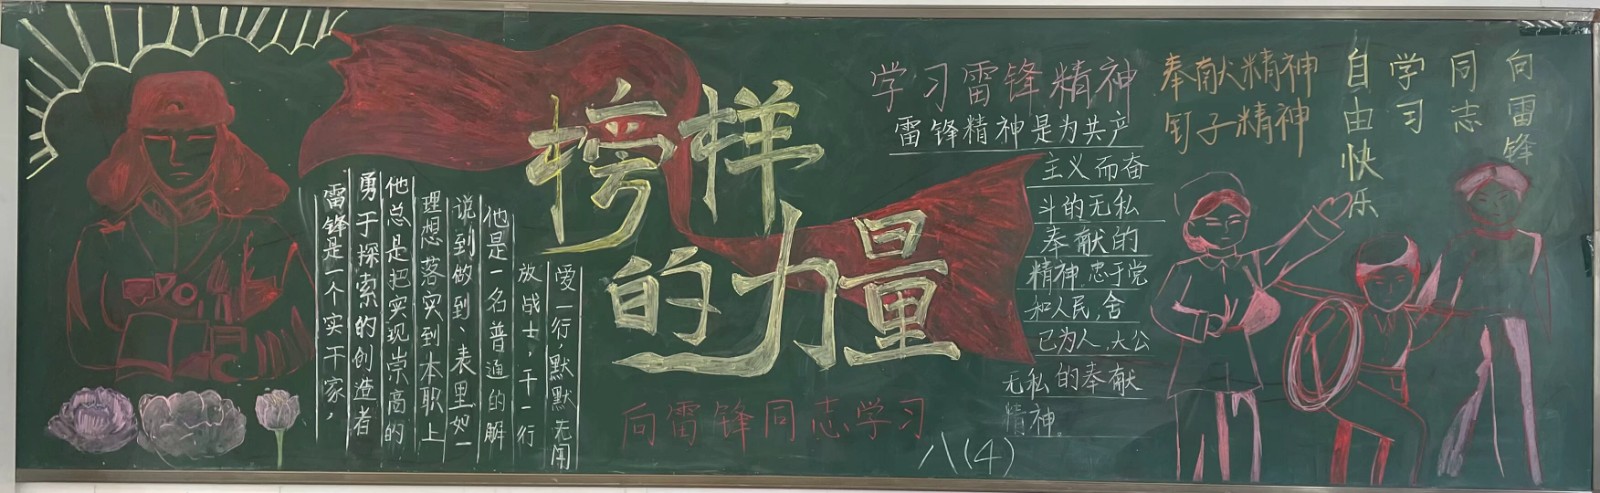 雷锋是一个实干家，
勇于探索的创造者
他总是把实现崇高的
理想落实到本职上
说到做到、表里如一
他是一名普通的解
放战士，干一行
爱一行，默默无闻
榜样
的力量
向雷锋同志学习
八(4)
学习雷锋精神
雷锋精神是为共产
主义而奋
斗的无私
奉献的
精神.忠于党
和人民,舍
己为人,大公
无私的奉献
精神。
奉献精神
钉子精神
向雷锋
同志
学习
自由快乐